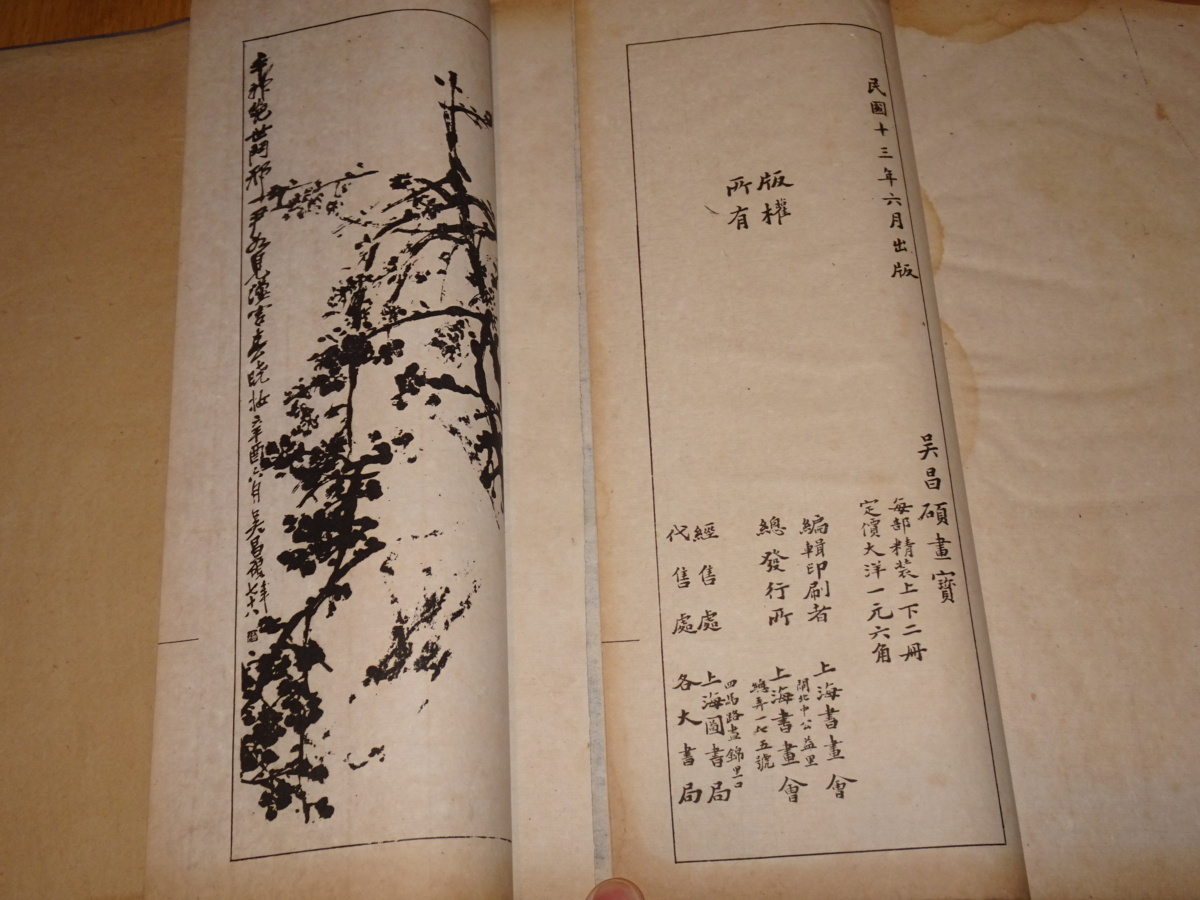 民國十三年六月出版
版權
所有
吳昌碩畫寶
每部精裝上下二冊
定價大洋一元六角
編輯印刷者
上海書畫會
閘北中公益里
總發行所
上海書畫會
總弄一七五號
經售處
四馬路畫錦里口
上海圖書局
代售處
各大書局
辛酉六月吳昌碩年七十八